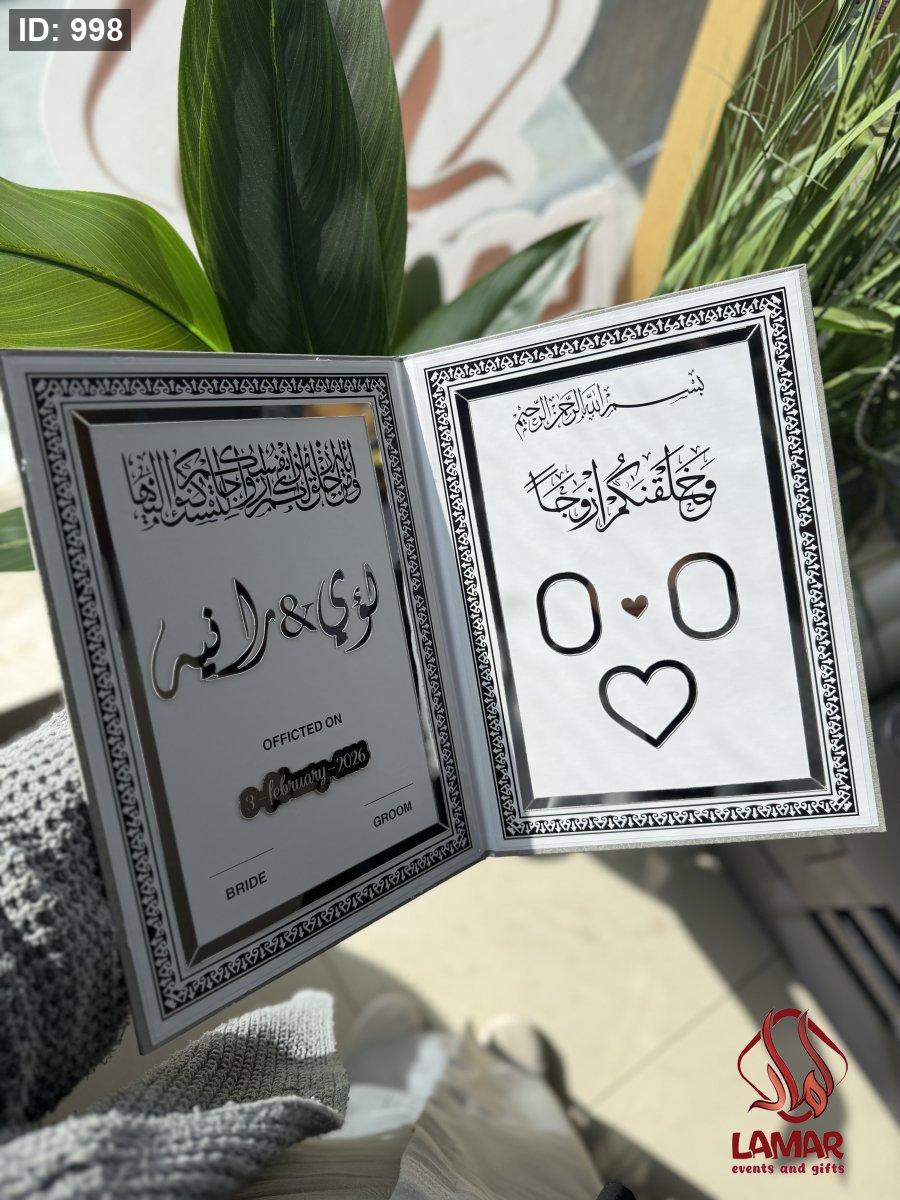 ID: 998
بسم الله الرحمن الرحيم
وَخَلَقْنَكُمْ أَزْوَجًا
ومن آياته أن خلق لكم من أنفسكم أزواجا لتسكنوا إليها
لؤي & رانيه
OFFICTED ON
3-february-2026
GROOM
BRIDE
لامار
LAMAR
events and gifts